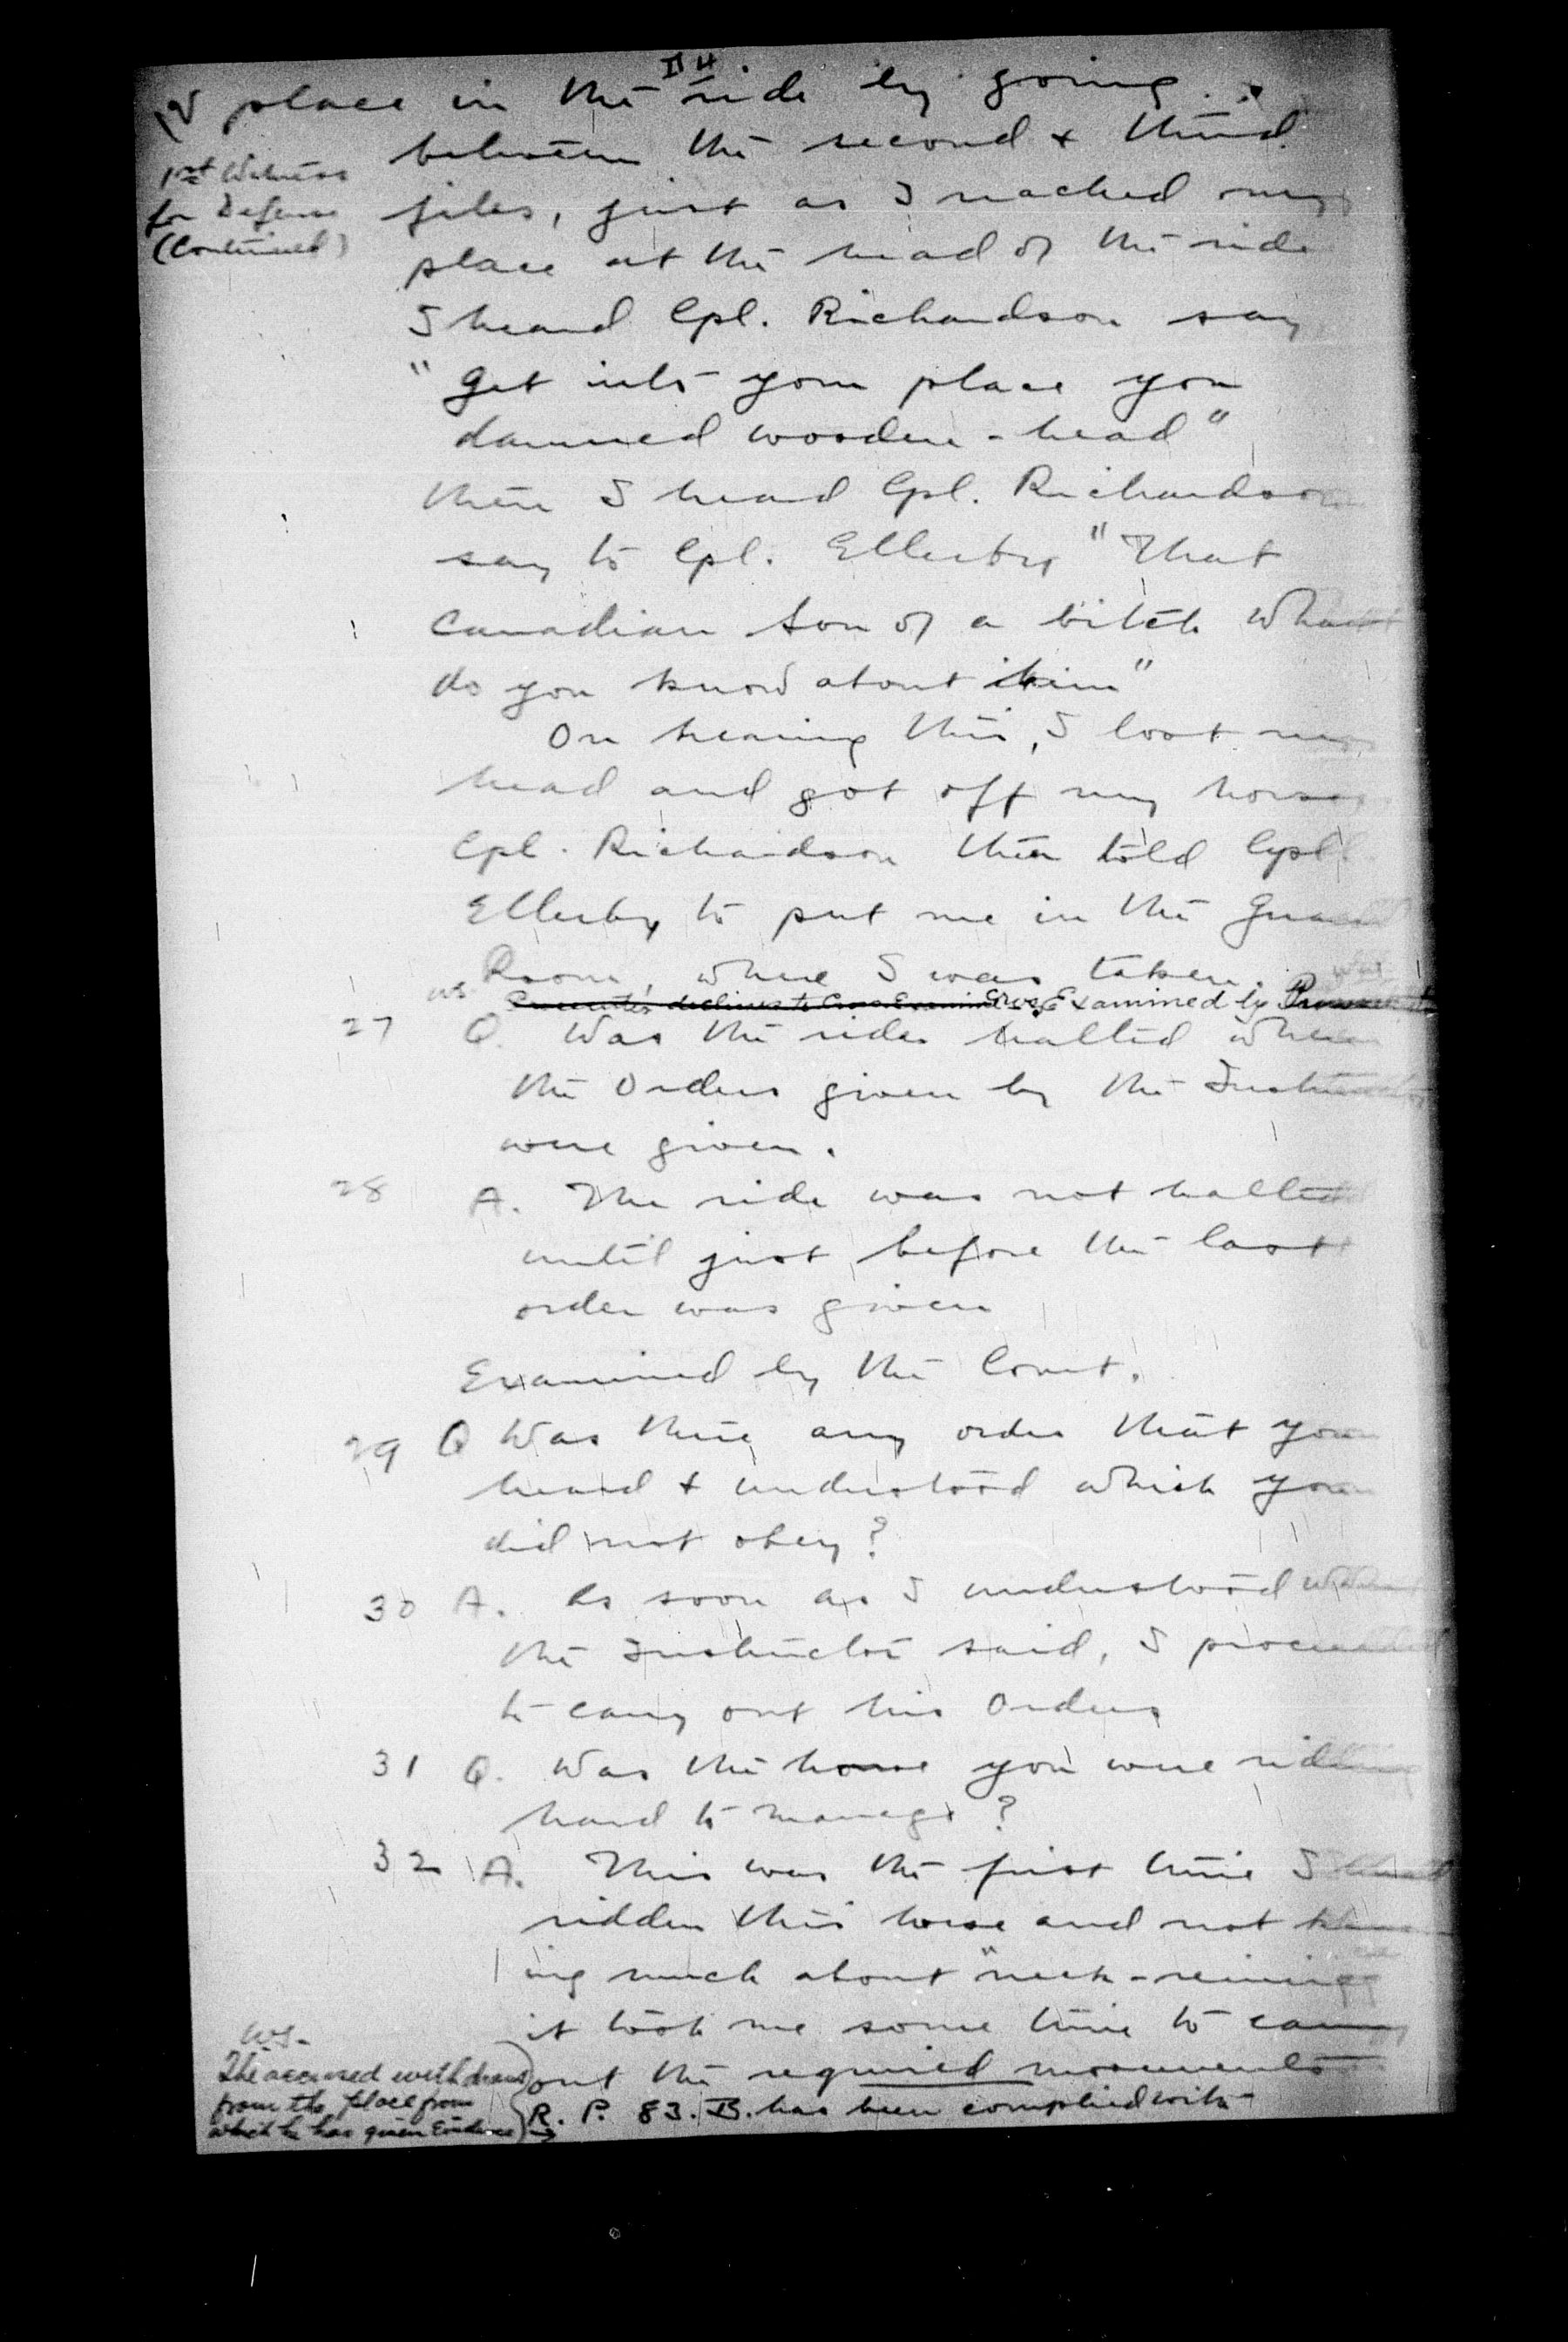 place in the ride by going
1st Witness
for Defence
(Continued)
between the second & third
files, just as I reached my
place at the head of the ride
I heard Cpl. Richardson say
" Get into your place you
damned wooden-head"
then I heard Cpl. Richardson
say to Cpl. Ellerby "That
Canadian son of a bitch what
do you know about him"
On hearing this, I lost my
head and got off my horse
Cpl. Richardson then told Cpl.
Ellerby to put me in the Guard
Room, where I was taken.
ws. Prosecutor declines to Cross Examine Cross Examined by
27 Q. Was the rides halted when
the Orders given by the Instructor
were given.
28 A. The ride was not halted
until just before the last
order was given
Examined by the Court.
29 Q Was there any order that you
heard & understood which you
did not obey?
30 A. As soon as I understood what
the Instructor said, I proceeded
to carry out his Orders
31 Q. Was the horse you were riding
hard to manage?
32 A. This was the first time I had
ridden this horse and not know
ing much about "neck-reining
it took me some time to carry
out the required movements
ws.
The accused withdraws
from the place from
which he has given Evidence
R. P. 83. B. has been complied with